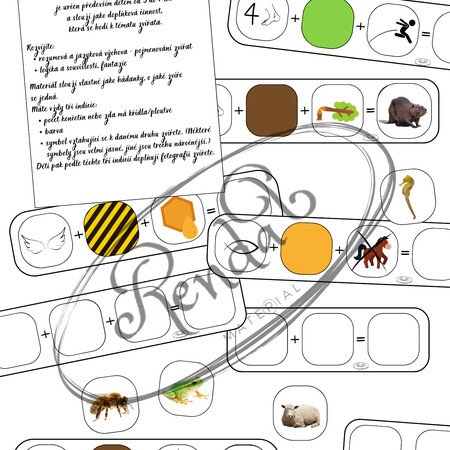 je určen především dětem od 3 do
a slouží jako doplňková činnost,
která se hodí k tématu zvířata.
Rozvíjíte:
• rozumová a jazyková výchova - pojmenování zvířat
• logika a souvislosti, fantazie
Materiál slouží vlastně jako hádanky, s jaké zvíře
se jedná.
Máte vždy tři indicie:
• počet končetin nebo zda má křídla/ploutve
• barva
• symbol vztahující se k danému druhu zvířete. (Některé
symboly jsou velmi jasné, jiné jsou trochu náročnější.)
Děti pak podle těchto tří indicií doplňují fotografii zvířete.
4 + +
+ + =
+ + =
+ + =
+ + =
+ =
Renda
MATERIÁL